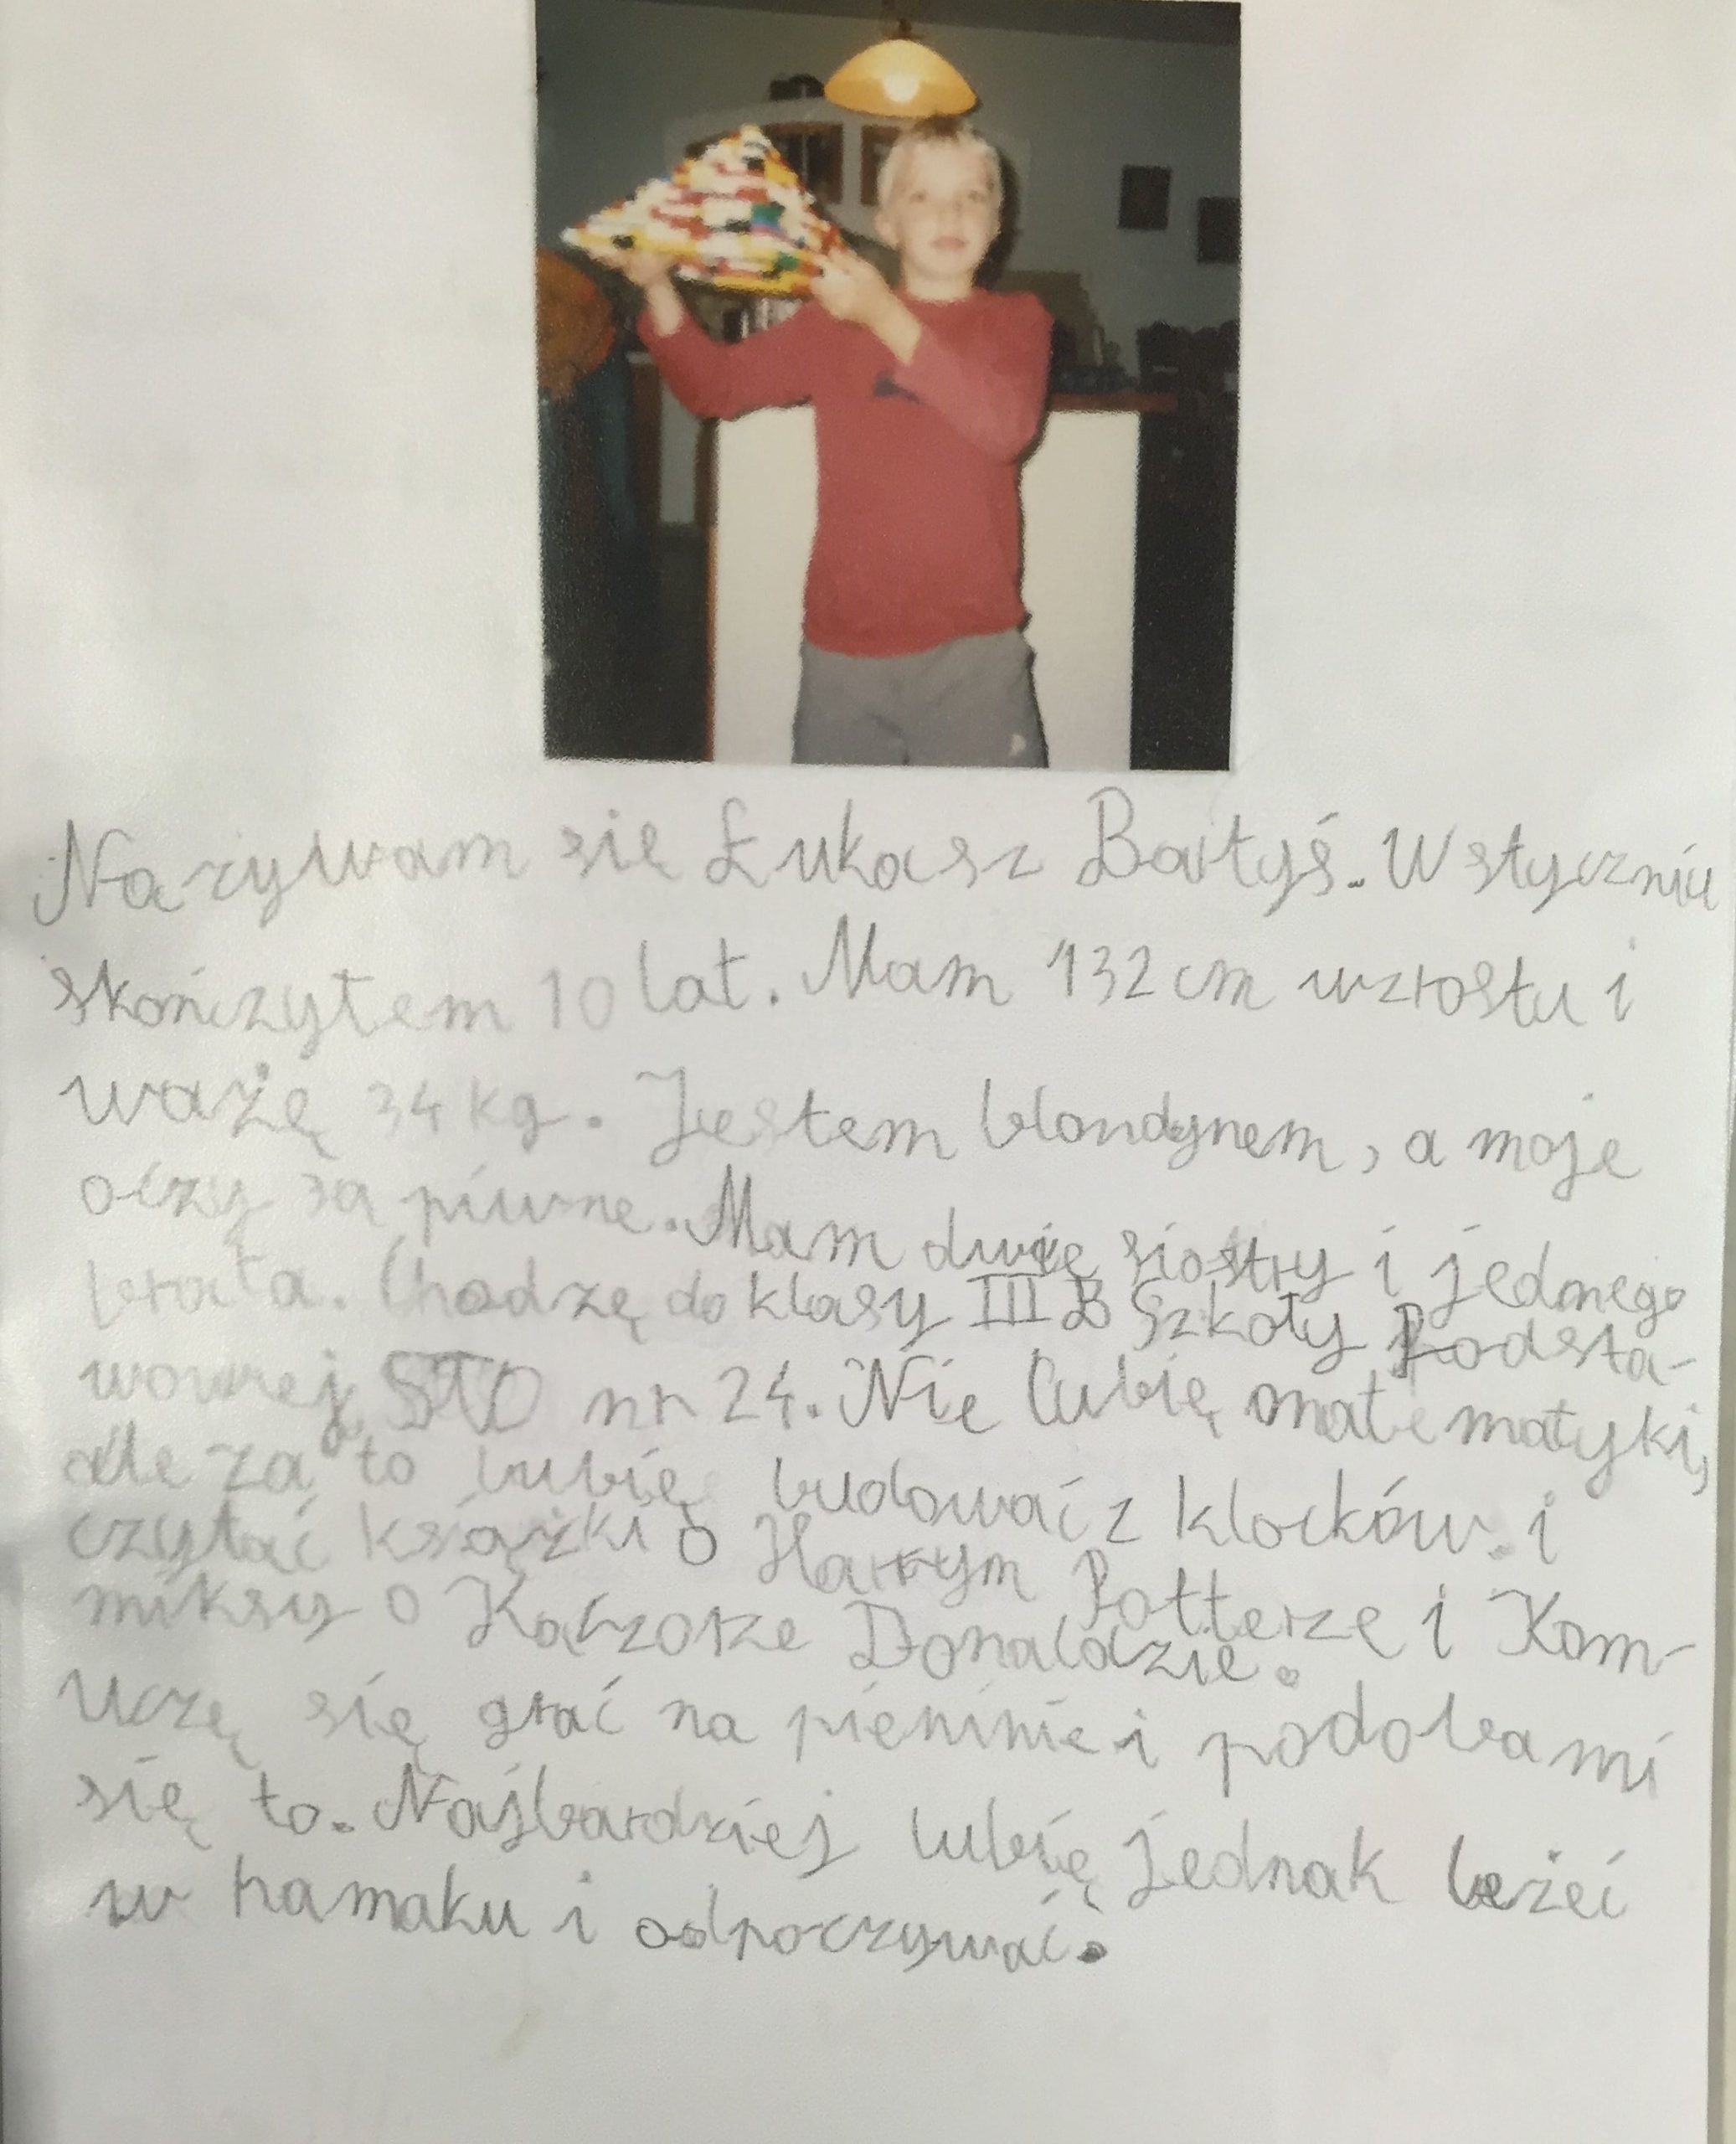 Nazywam się Łukasz Bałtyś. W styczniu
skończyłem 10 lat. Mam 132 cm wzrostu i
ważę 34 kg. Jestem blondynem, a moje
oczy są piwne. Mam dwie siostry i jednego
brata. Chodzę do klasy III B Szkoły Podsta-
wowej STO nr 24. Nie lubię matematyki,
ale za to lubię budować z klocków i
czytać książki o Harrym Potterze i Kom-
miksy o Kaczorze Donaldzie.
Uczę się grać na pieninie i podoba mi
się to. Najbardziej lubię jednak leżeć
w hamaku i odpoczywać.